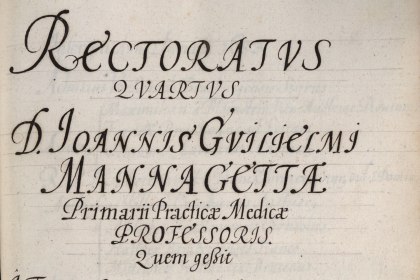 RECTORATVS
QVARTVS
D. IOANNIS GVILIELMI
MANNAGETTÆ
Primarii Practicæ Medicæ
PROFESSORIS.
Quem geßit